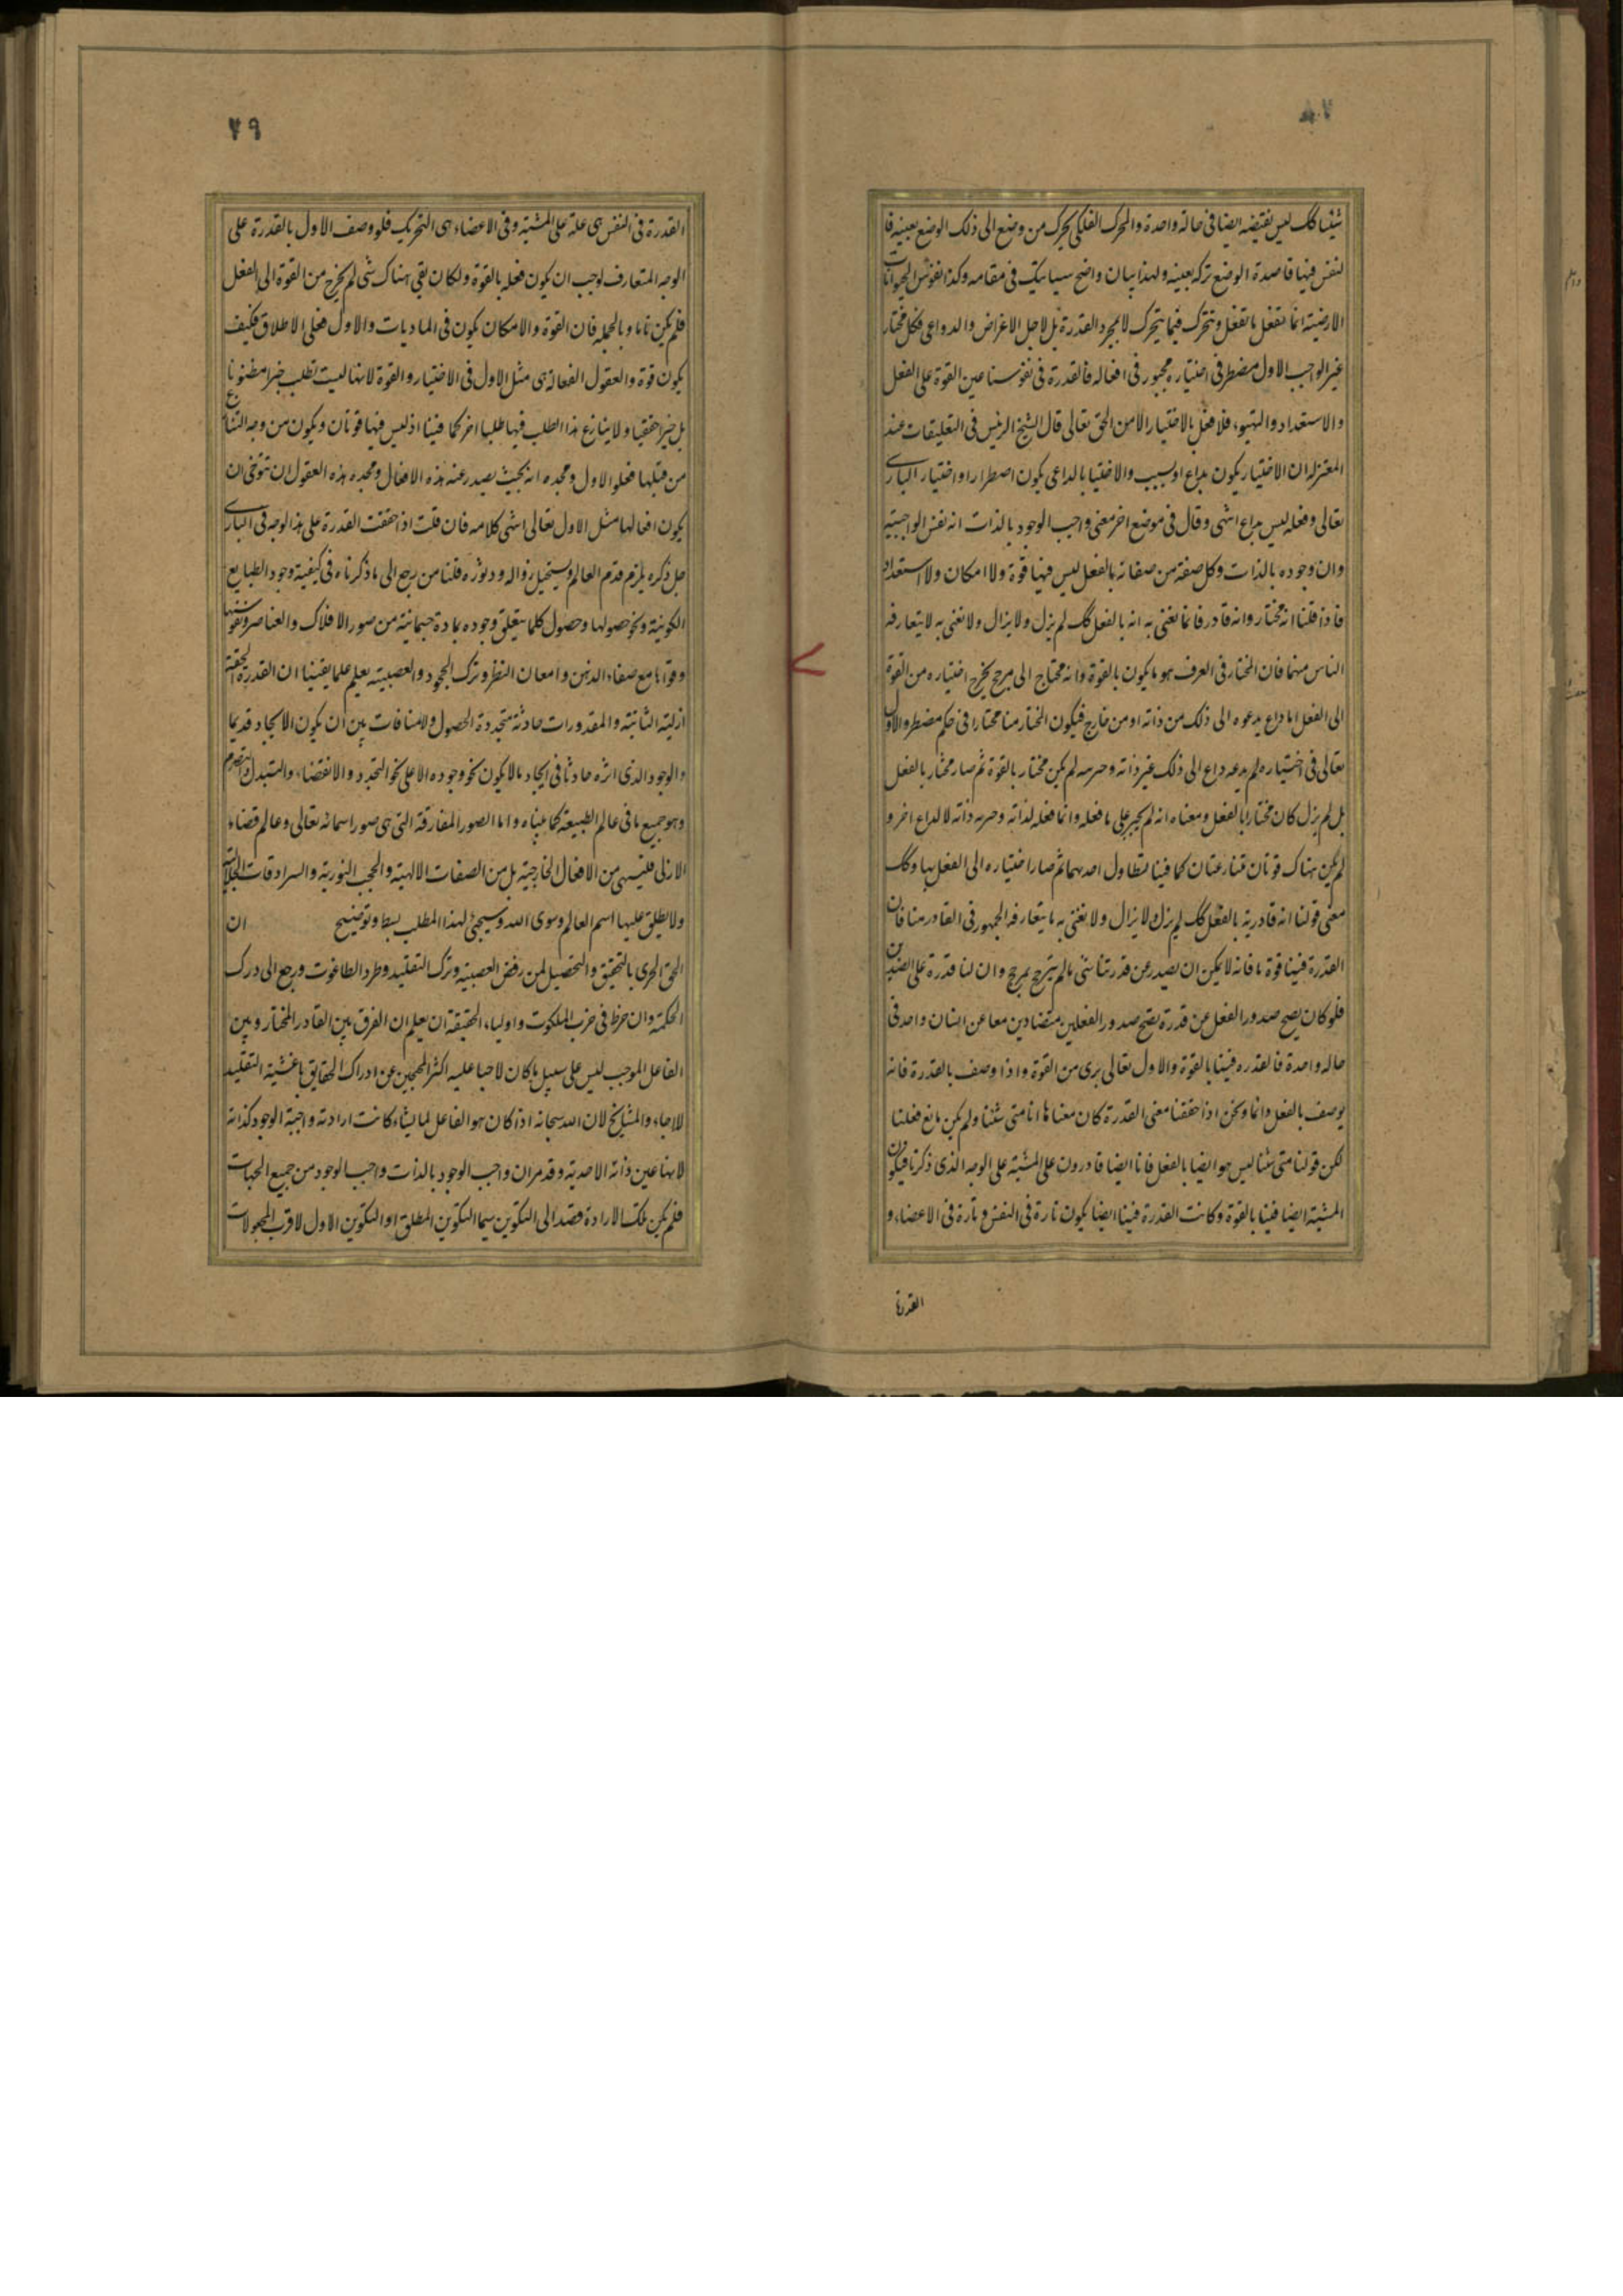 شيئا كك ليس يقتضيه ايضا في حالة واحدة والمحرك الفلكي يحرك من وضع الى ذلك الوضع بعينه فا
لنفس فيها قاصدة الوضع تركه بعينه ولهذا بيان واضح سياتيك في مقامه وكذا نفوس الحيوانات
الارضية انما تفعل ما تفعل وتتحرك فيما يتحرك لا بمجرد القدرة بل لاجل الاغراض والدواعي فكل مختار
غير الواجب الاول مضطر في اختياره مجبور في افعاله فالقدرة في نفوسنا عين القوة على الفعل
والاستعداد والتهيوء فلا فعل بالاختيار الا من الحق تعالى قال الشيخ الرئيس في التعليقات عند
المعتزلة ان الاختيار يكون بداع او بسبب والاختيا بالداعي يكون اضطرارا واختيار الباري
تعالى وفعله ليس بداع انتهى وقال في موضع اخر معنى واجب الوجود بالذات انه نفس الواجبية
وان وجوده بالذات وكل صفة من صفاته بالفعل ليس فيها قوة ولا امكان ولا استعداد
فاذا قلنا انه مختار وانه قادر فانما نعني به انه بالفعل كك لم يزل ولا يزال ولا نعني به لا يتعارفه
الناس منهما فان المختار في العرف هو ما يكون بالقوة وانه محتاج الى مرجح يخرج اختياره من القوة
الى الفعل اما داع يدعوه الى ذلك من ذاته او من خارج فيكون المختار منا مختارا في حكم مضطر والاول
تعالى في اختياره لم يدعه داع الى ذلك غير ذاته وخيريته لم يكن مختار بالقوة ثم صار مختار بالفعل
بل لم يزل كان مختارا بالفعل ومعناه انه لم يجبر على ما فعله وانما فعله لذاته وخيرية ذاته لا لداع اخر و
لم يكن هناك قوتان متنازعتان كما فينا تطاول احديهما ثم صار اختياره الى الفعل بها وكك
معنى قولنا انه قادر به بالفعل كك لم يزل ولا يزال ولا نعني به ما يتعارفه الجمهور في القادر منا فان
القدرة فينا قوة ما فانه لا يمكن ان يصدر عن قدرتنا شيء ما لم يترجح بمرجح وان لنا قدرة على الضدين
فلو كان يصح صدور الفعل عن قدرة يصح صدور الفعلين متضادين معا عن انسان واحد في
حاله واحدة فالقدره فينا بالقوة والاول تعالى بري من القوة واذا وصف بالقدرة فانه
يوصف بالفعل دائما ونحن اذا حققنا معنى القدرة كان معناها انا متى شئنا ولم يكن مانع فعلنا
لكن قولنا متى شئنا ليس هو ايضا بالفعل فانا ايضا قادرون على المشية على الوجه الذي ذكرنا فيكون
المشية ايضا فينا بالقوة وكانت القدرة فينا ايضا يكون تارة في النفس وتارة في الاعضاء و
القدرة
٧٩
القدرة في النفس هي علة على المشية وفي الاعضاء هي التحريك فلو وصف الاول بالقدرة على
الوجه المتعارف لوجب ان يكون فعله بالقوة ولكان بقي هناك شي لم يخرج من القوة الى الفعل
فلم يكن تاما وبالجملة فان القوة والامكان يكون في الماديات والاول فعلي الاطلاق فكيف
يكون قوة والعقول الفعالة هي مثل الاول في الاختيار والقوة لانها ليست تطلب خيرا مظنونا
بل خيرا حقيقيا ولا ينازع هذا الطلب فيها طلبا اخر كما فينا اذ ليس فيها قوتان ويكون من وجه التنازع
من قبلها فعلو الاول ومجده انه بحيث يصدر عنه هذه الافعال ومجده هذه العقول ان تتوخى ان
يكون افعالها مثل الاول تعالى انتهى كلامه فان قلت اذا حققت القدرة على هذا الوجه في الباري
جل ذكره يلزم قدم العالم ويستحيل زواله ودثوره قلنا من رجع الى ما ذكرناه في كيفية وجود الطبايع
الكونية ونحو حصولها وحصول كلما يتعلق وجوده بمادة جسمانية من صور الافلاك والعناصر ونفوسها
وقواها مع صفاء الذهن وامعان النظر وترك الجحود والعصبية يعلم علما يقينيا ان القدرة الحقيقية
ازلية الثابتة والمقدورات حادثة متجددة الحصول ولا منافات بين ان يكون الايجاد قديما
والوجود الذي اثره حادثا في ايجاد ما لا يكون نحو وجوده الا على نحو التجدد والانقضاء والتبدل والتصرم
وهو جميع ما في عالم الطبيعة كما بيناه واما الصور المفارقة التي هي صور اسمائه تعالى وعالم قضاء
الازلي فليس هي من الافعال الخارجية بل من الصفات الالهية والحجب النورية والسرادقات الجلالية
ولا يطلق عليها اسم العالم وسوى الله وسيجئ لهذا المطلب بسط وتوضيح ان
الحق الحري بالتحقيق والتحصيل لمن رفض العصبية وترك التقليد وطرد الطاغوت ورجع الى درك
الحكمة وان خرط في حزب الملكوت واولياء الحقيقة ان يعلم ان الفرق بين القادر المختار وبين
الفاعل الموجب ليس على سبيل ما كان لاحبا عليه اكثر المحجبين عن ادراك الحقايق باغشية التقليد
للاباء والمشايخ لان الله سبحانه اذا كان هو الفاعل لما يشاء كانت ارادته واجبة الوجود كذاته
لانها عين ذاته الاحدية وقد مر ان واجب الوجود بالذات واجب الوجود من جميع الجهات
فلم يكن تلك الارادة قصدا الى التكوين سيما التكوين المطلق او التكوين الاول لاقرب المجعولات